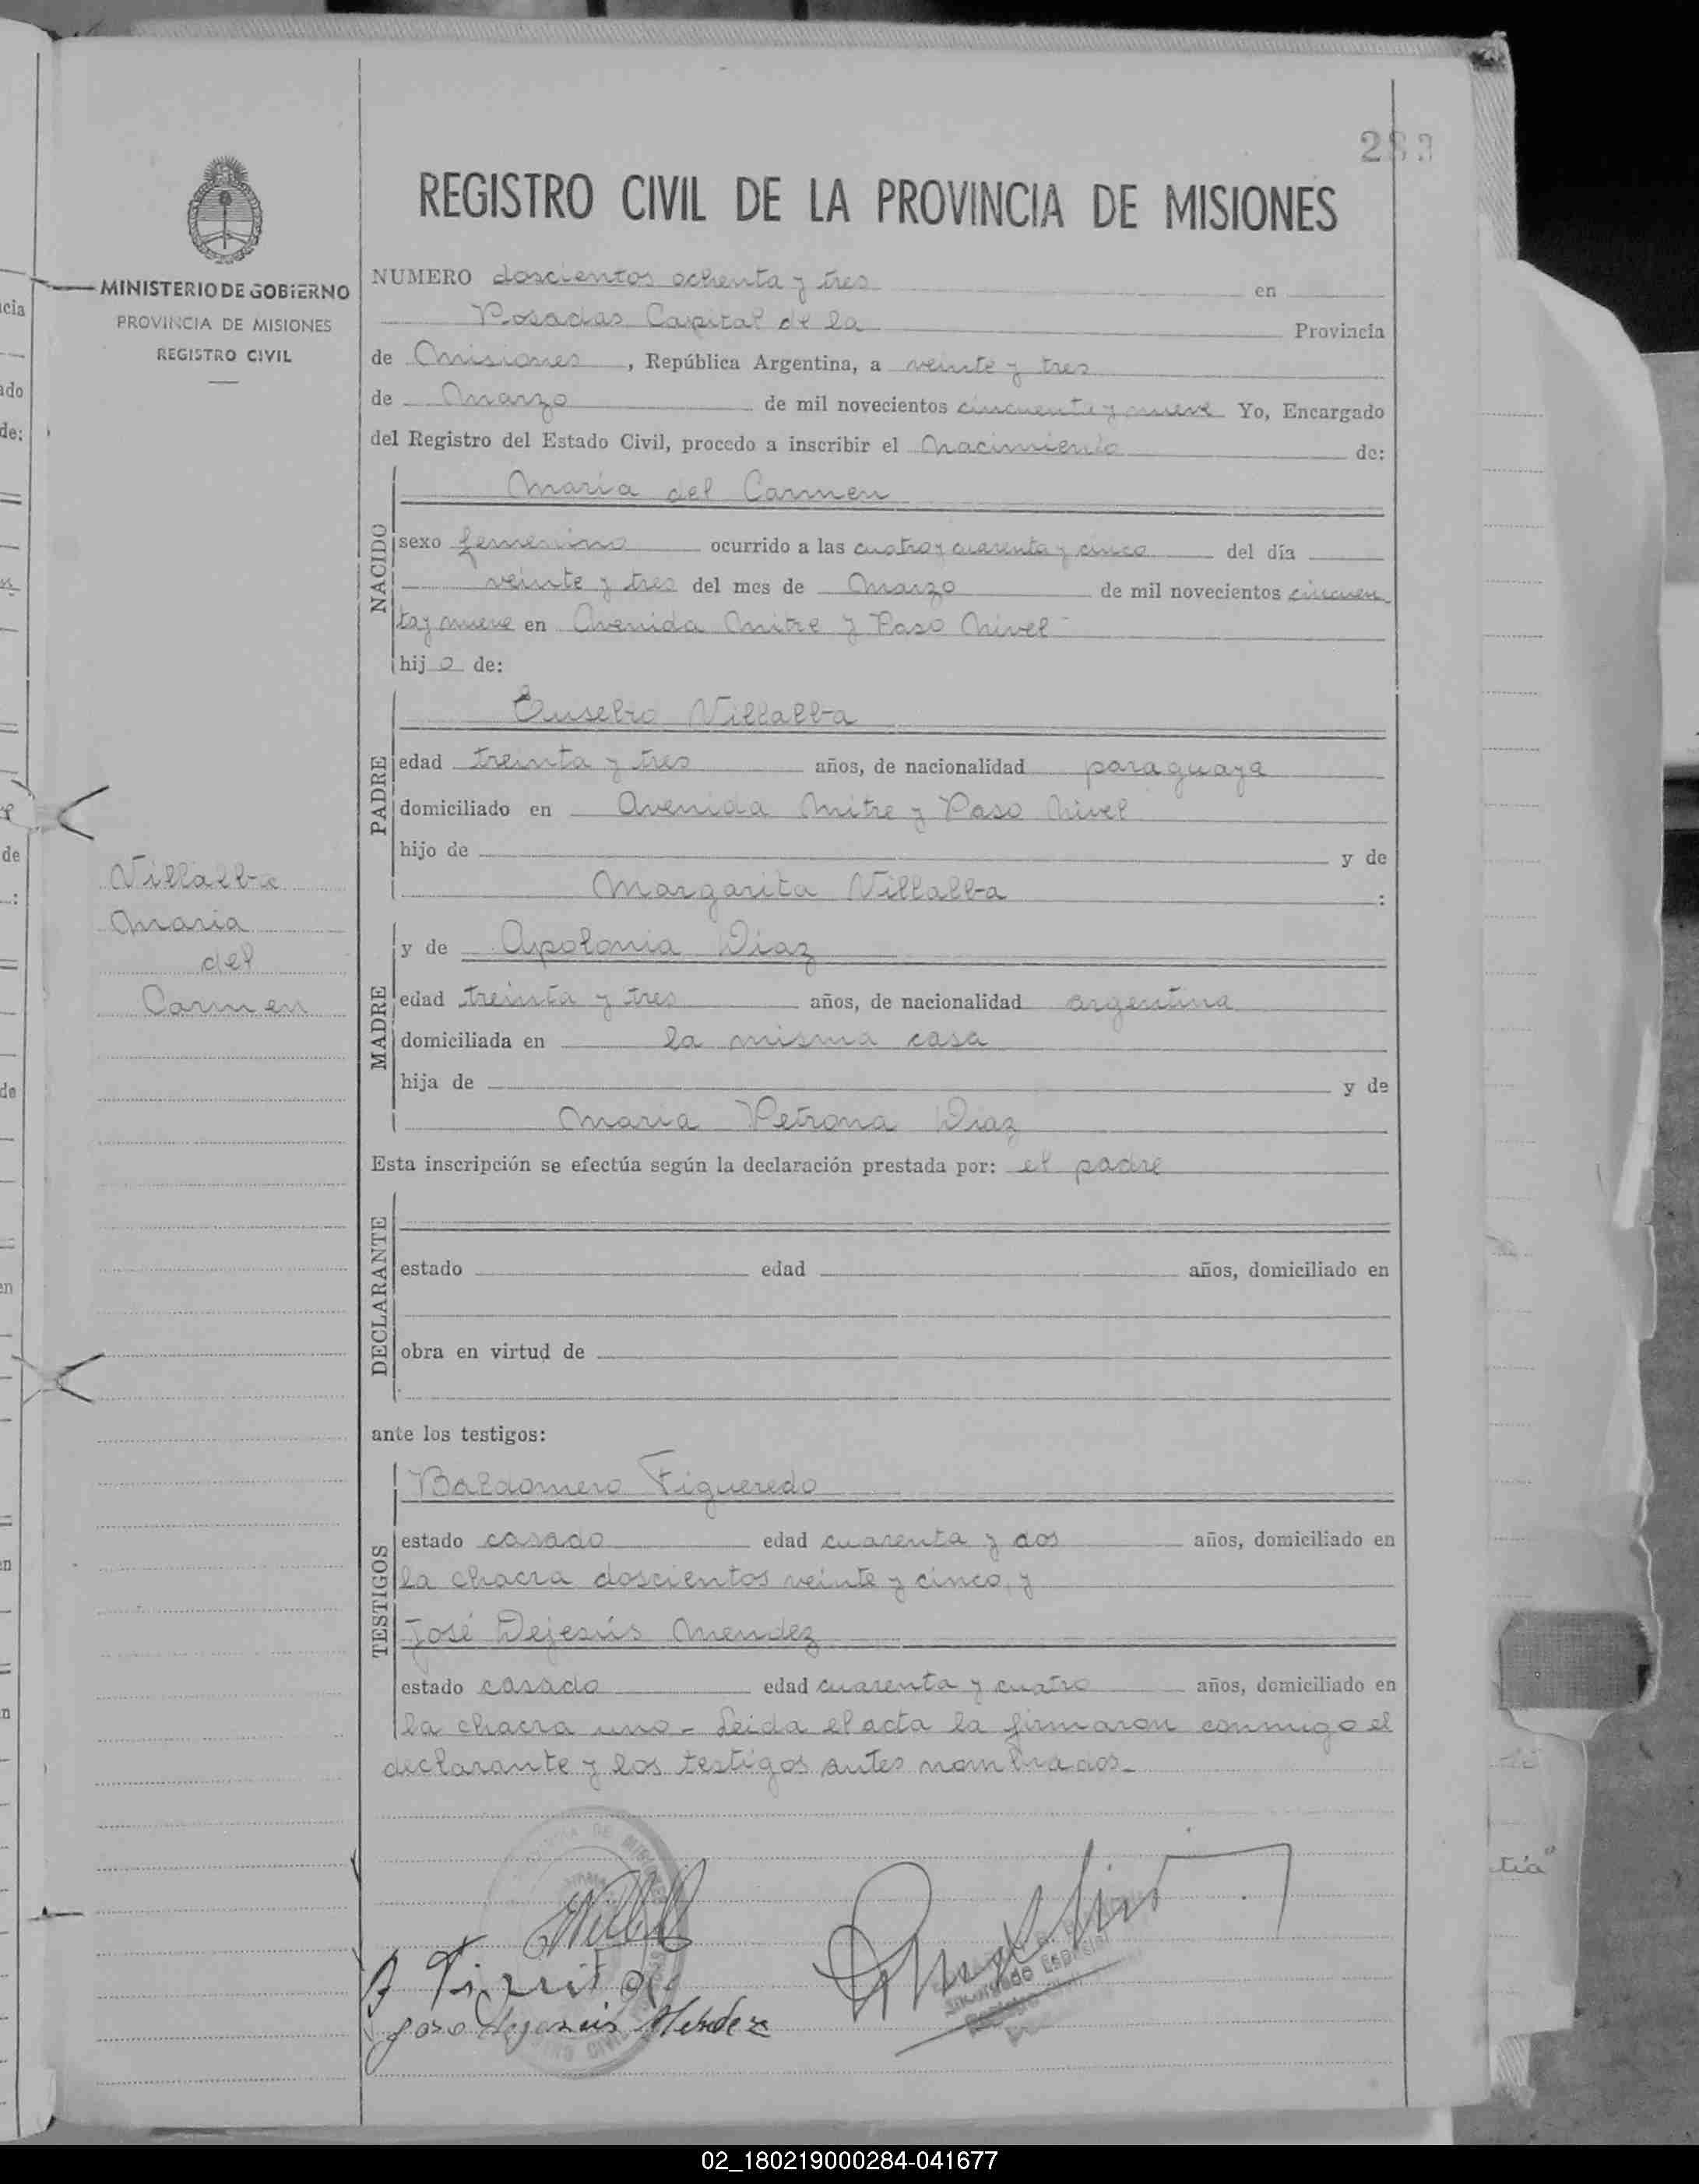 283
REGISTRO CIVIL DE LA PROVINCIA DE MISIONES
MINISTERIO DE GOBIERNO
PROVINCIA DE MISIONES
REGISTRO CIVIL
NUMERO doscientos ochenta y tres en
Posadas Capital de la Provincia
de Misiones, República Argentina, a veinte y tres
de Marzo de mil novecientos cincuenta y nueve Yo, Encargado
del Registro del Estado Civil, procedo a inscribir el Nacimiento de:
NACIDO
Maria del Carmen
sexo femenino ocurrido a las cuatro y cuarenta y cinco del día
veinte y tres del mes de Marzo de mil novecientos cincuen
ta y nueve en Avenida Mitre y Paso Nivel
hij a de:
PADRE
Eusebio Villalba
edad treinta y tres años, de nacionalidad paraguaya
domiciliado en Avenida Mitre y Paso Nivel
hijo de y de
Margarita Villalba :
Villalba
Maria
del
Carmen
MADRE
y de Apolonia Diaz
edad treinta y tres años, de nacionalidad argentina
domiciliada en la misma casa
hija de y de
Maria Petrona Diaz
Esta inscripción se efectúa según la declaración prestada por: el padre
DECLARANTE
estado edad años, domiciliado en
obra en virtud de
ante los testigos:
TESTIGOS
Baldomero Figueredo
estado casado edad cuarenta y dos años, domiciliado en
la chacra doscientos veinte y cinco, y
José Dejesús Mendez
estado casado edad cuarenta y cuatro años, domiciliado en
la chacra uno - Leida el acta la firmaron conmigo el
declarante y los testigos antes nombrados -
Mendez
02_180219000284-041677